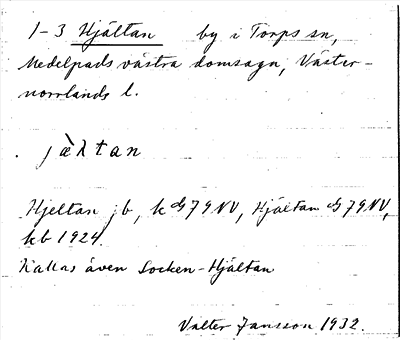 1-3 Hjältan by i Torps sn,
Medelpads västra domsaga, Väster-
norrlands l.
jæ̀λtan
Hjeltan jb, k G79NV, Hjältan G79NV,
kb 1924.
Kallas även Socken-Hjältan
Valter Jansson 1932.